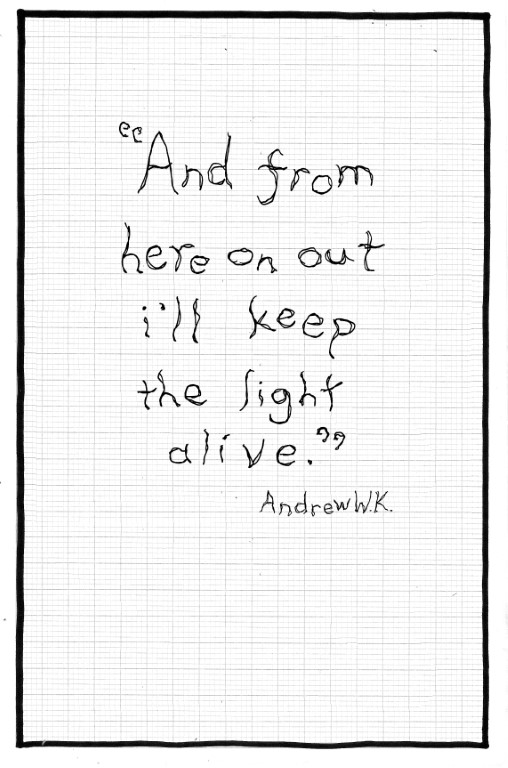 “And from
here on out
i'll keep
the light
alive.”
Andrew W.K.